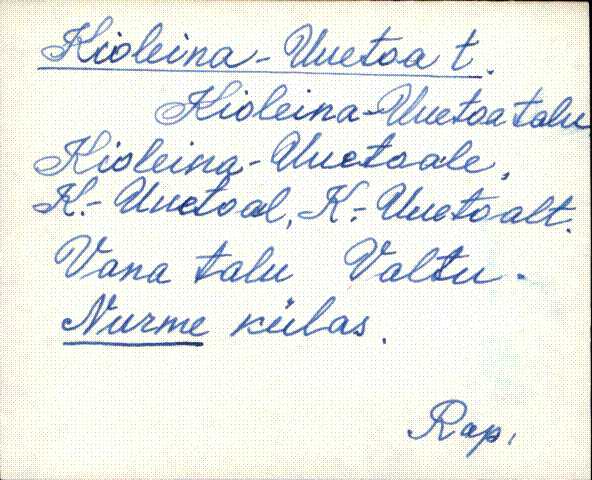 Kioleina-Uuetoa t.
Kioleina-Uuetoa talu
Kioleina-Uuetoale,
K.- Uuetoal, K.- Uuetoalt.
Vana talu Valtu.
Nurme külas.
Rap.